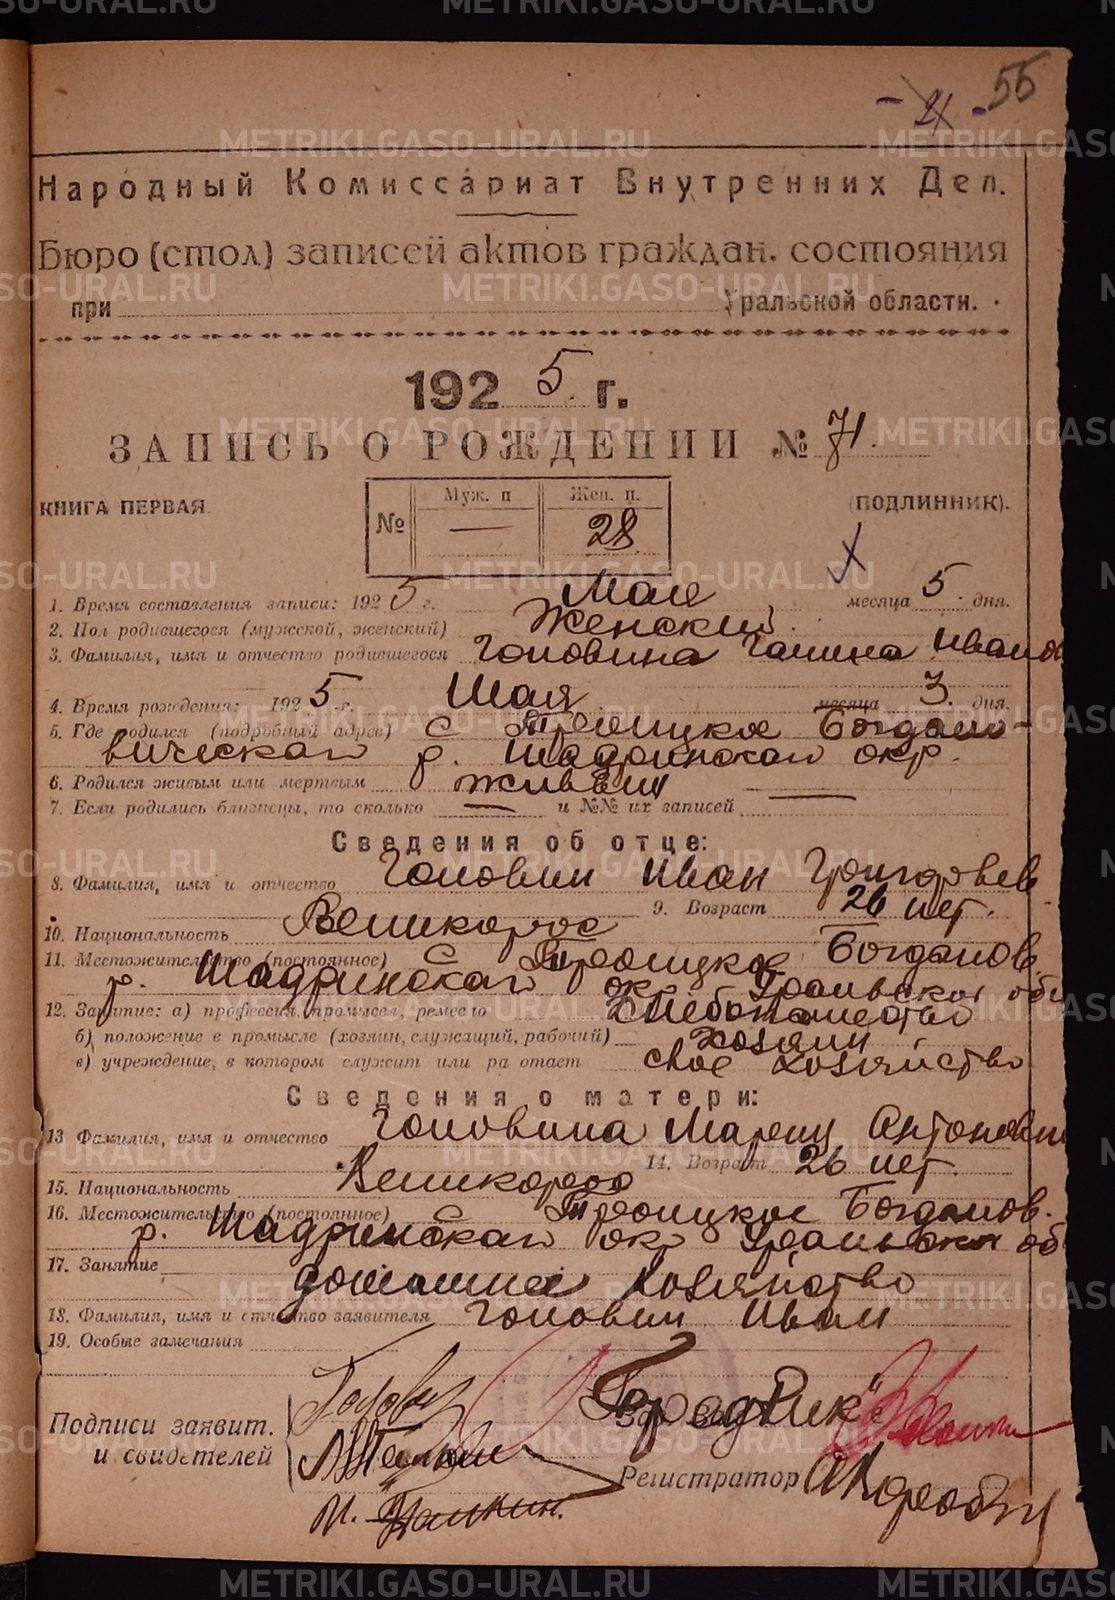 55
- 21 -
Народный Комиссариат Внутренних Дел.
Бюро (стол) записей актов граждан. состояния
при Уральской области.
1925 г.
ЗАПИСЬ О РОЖДЕНИИ № 71.
КНИГА ПЕРВАЯ (ПОДЛИННИК).
№ Муж. п — Жен. п. 28
1. Время составления записи: 1925 г. Мая месяца 5 дня.
2. Пол родившегося (мужской, женский) Женский
3. Фамилия, имя и отчество родившегося Головина Галина Иванов
4. Время рождения: 1925 г. Мая месяца 3 дня.
5. Где родился (подробный адрес) с Троицкое Богдано-
вическаго р. Шадринскаго окр.
6. Родился живым или мертвым живым
7. Если родились близнецы, то сколько — и №№ их записей —
Сведения об отце:
8. Фамилия, имя и отчество Головин Иван Григорьев
9. Возраст 26 лет.
10. Национальность Великорос
11. Местожительство (постоянное) с Троицкое Богданов.
р. Шадринскаго окр Уральской обл
12. Занятие: а) профессия, промысел, ремесло Хлебопашество
б) положение в промысле (хозяин, служащий, рабочий) хозяин
в) учреждение, в котором служит или ра отает свое хозяйство
Сведения о матери:
13 Фамилия, имя и отчество Головина Мария Антонови
14. Возраст 26 лет.
15. Национальность Великоросс
16. Местожительство (постоянное) с Троицкое Богданов.
р. Шадринскаго окр Уральской об
17. Занятие домашнее хозяйство
18. Фамилия, имя и отчество заявителя Головин Иван
19. Особые замечания
Подписи заявит.
и свидетелей
Головин
Зав.
Регистратор
METRIKI.GASO-URAL.RU